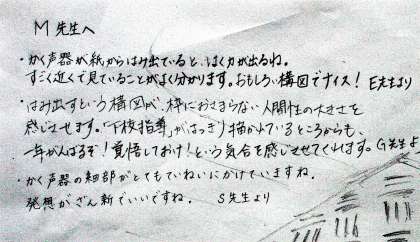 M先生へ
・かく声器が紙からはみ出ていると、はく力が出るね。
すごく近くで見ていることがよく分かります。おもしろい構図でナイス！ E先生より
・はみ出すという構図が、枠におさまらない人間性の大きさを
感じさせます。「下校指導」がはっきり描かれているところからも、
一年がんばるぞ！覚悟しておけ！という気合を感じさせてくれます。G先生よ
・かく声器の細部がとてもていねいにかけていますね。
発想がざん新でいいですね。 S先生より